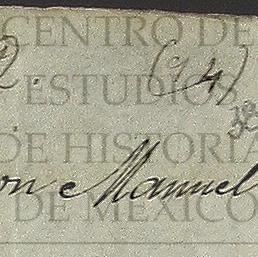 CENTRO DE
2. (94)
ESTUDIOS
DE HISTORIA
on Manuel
DE MEXICO